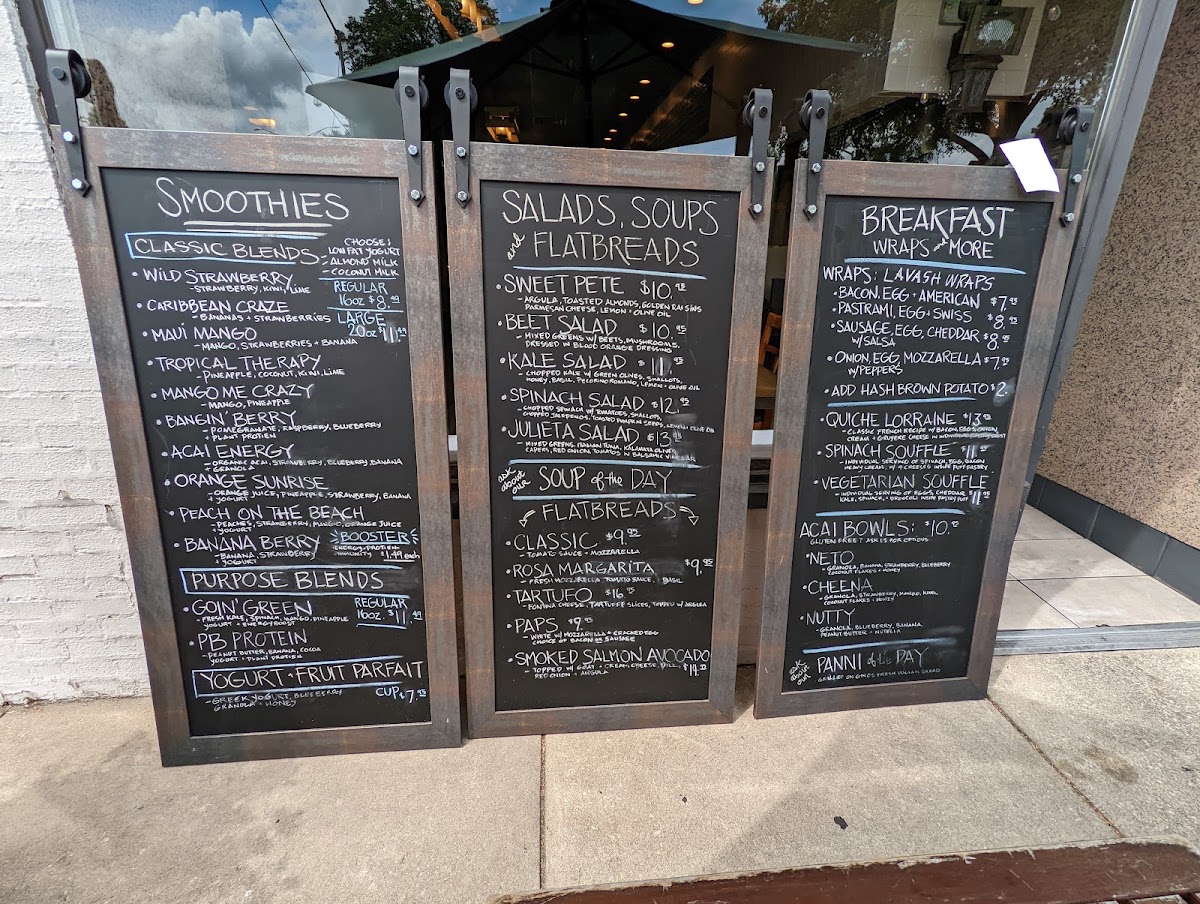 SMOOTHIES
CLASSIC BLENDS
CHOOSE:
LOW FAT YOGURT
ALMOND MILK
COCONUT MILK
• WILD STRAWBERRY
- STRAWBERRY, KIWI, LIME
REGULAR
16oz $8.49
• CARIBBEAN CRAZE
- BANANAS + STRAWBERRIES
LARGE
20oz $11.
• MAUI MANGO
- MANGO, STRAWBERRIES + BANANA
• TROPICAL THERAPY
- PINEAPPLE, COCONUT, KIWI, LIME
• MANGO ME CRAZY
- MANGO, PINEAPPLE
• BANGIN' BERRY
- POMEGRANATE, RASPBERRY, BLUEBERRY
+ PLANT PROTIEN
• ACAI ENERGY
- ORGANIC ACAI, STRAWBERRY, BLUEBERRY, BANANA
+ GRANOLA
• ORANGE SUNRISE
- ORANGE JUICE, PINEAPPLE, STRAWBERRY, BANANA
+ YOGURT
• PEACH ON THE BEACH
- PEACHES, STRAWBERRY, MANGO, ORANGE JUICE
+ YOGURT
• BANANA BERRY
- BANANA, STRAWBERRY
+ YOGURT
BOOSTER
ENERGY, PROTIEN
IMMUNITY $1.49 each
PURPOSE BLENDS
• GOIN' GREEN
- FRESH KALE, SPINACH, MANGO, PINEAPPLE
YOGURT + ENERGY BOOST
REGULAR
16oz. $11.49
• PB PROTEIN
- PEANUT BUTTER, BANANA, COCOA
YOGURT + PLANT PROTIEN
YOGURT + FRUIT PARFAIT
- GREEK YOGURT, BLUEBERRY
GRANOLA + HONEY
CUP $7.95
SALADS, SOUPS
and FLATBREADS
• SWEET PETE $10.
- ARGULA, TOASTED ALMONDS, GOLDEN RAISINS
PARMESAN CHEESE, LEMON + OLIVE OIL
• BEET SALAD $10.95
- MIXED GREENS W/ BEETS, MUSHROOMS,
DRESSED IN BLOOD ORANGE DRESSING
• KALE SALAD $11.
- CHOPPED KALE W/ GREEN OLIVES, SHALLOTS,
HONEY, BASIL, PECORINO ROMANO, LEMON + OLIVE OIL
• SPINACH SALAD $12.
- CHOPPED SPINACH W/ TOMATOES, SHALLOTS,
CHOPPED JALEPENOS, TOASTED PUMPKIN SEEDS, LEMON OLIVE OIL
• JULIETA SALAD $13.
- MIXED GREENS, ITALIAN TUNA, KALAMATA OLIVES,
CAPERS, RED ONION, TOMATOES IN BALSAMIC VINEGAR
ask about our
SOUP of the DAY
FLATBREADS
• CLASSIC $9.95
- TOMATO SAUCE + MOZZARELLA
• ROSA MARGARITA $9.95
- FRESH MOZZARELLA TOMATO SAUCE BASIL
• TARTUFO $16.
- FONTINA CHEESE, TARTUFFE SLICES, TOPPED W/ ARGULA
• PAPS $9.95
- WHITE W/ MOZZARELLA + CRACKED EGG
CHOICE OF BACON OR SAUSAGE
• SMOKED SALMON AVOCADO
- TOPPED W/ GRAY + CREAM CHEESE, DILL,
RED ONION + ARGULA
$14.95
BREAKFAST
WRAPS and MORE
WRAPS: LAVASH WRAPS
• BACON, EGG + AMERICAN $7.95
• PASTRAMI, EGG + SWISS $8.
• SAUSAGE, EGG, CHEDDAR $8.
W/ SALSA
• ONION, EGG, MOZZARELLA $7.
W/ PEPPERS
• ADD HASH BROWN POTATO $2.
• QUICHE LORRAINE $13.
- CLASSIC FRENCH RECIPE W/ BACON, EGGS, ONION,
CREAM + GRUYERE CHEESE IN INDIVIDUAL
• SPINACH SOUFFLE $11.
- INDIVIDUAL SERVING OF SPINACH, EGG, BACON
HEAVY CREAM, W/ 4 CHEESES INSIDE PUFF PASTRY
• VEGETARIAN SOUFFLE
- INDIVIDUAL SERVING OF EGGS, CHEDDAR
KALE, SPINACH, + BROCCOLI INSIDE PUFF PASTRY $11.
ACAI BOWLS: $10.
GLUTEN FREE? ASK US FOR OPTIONS
• NETO
- GRANOLA, BANANA, STRAWBERRY, BLUEBERRY
COCONUT FLAKES + HONEY
• CHEENA
- GRANOLA, STRAWBERRY, MANGO, KIWI,
COCONUT FLAKES + HONEY
• NUTTY
- GRANOLA, BLUEBERRY, BANANA,
PEANUT BUTTER + NUTELLA
ask about our
PANNI of the DAY
GRILLED ON FRESH ITALIAN BREAD